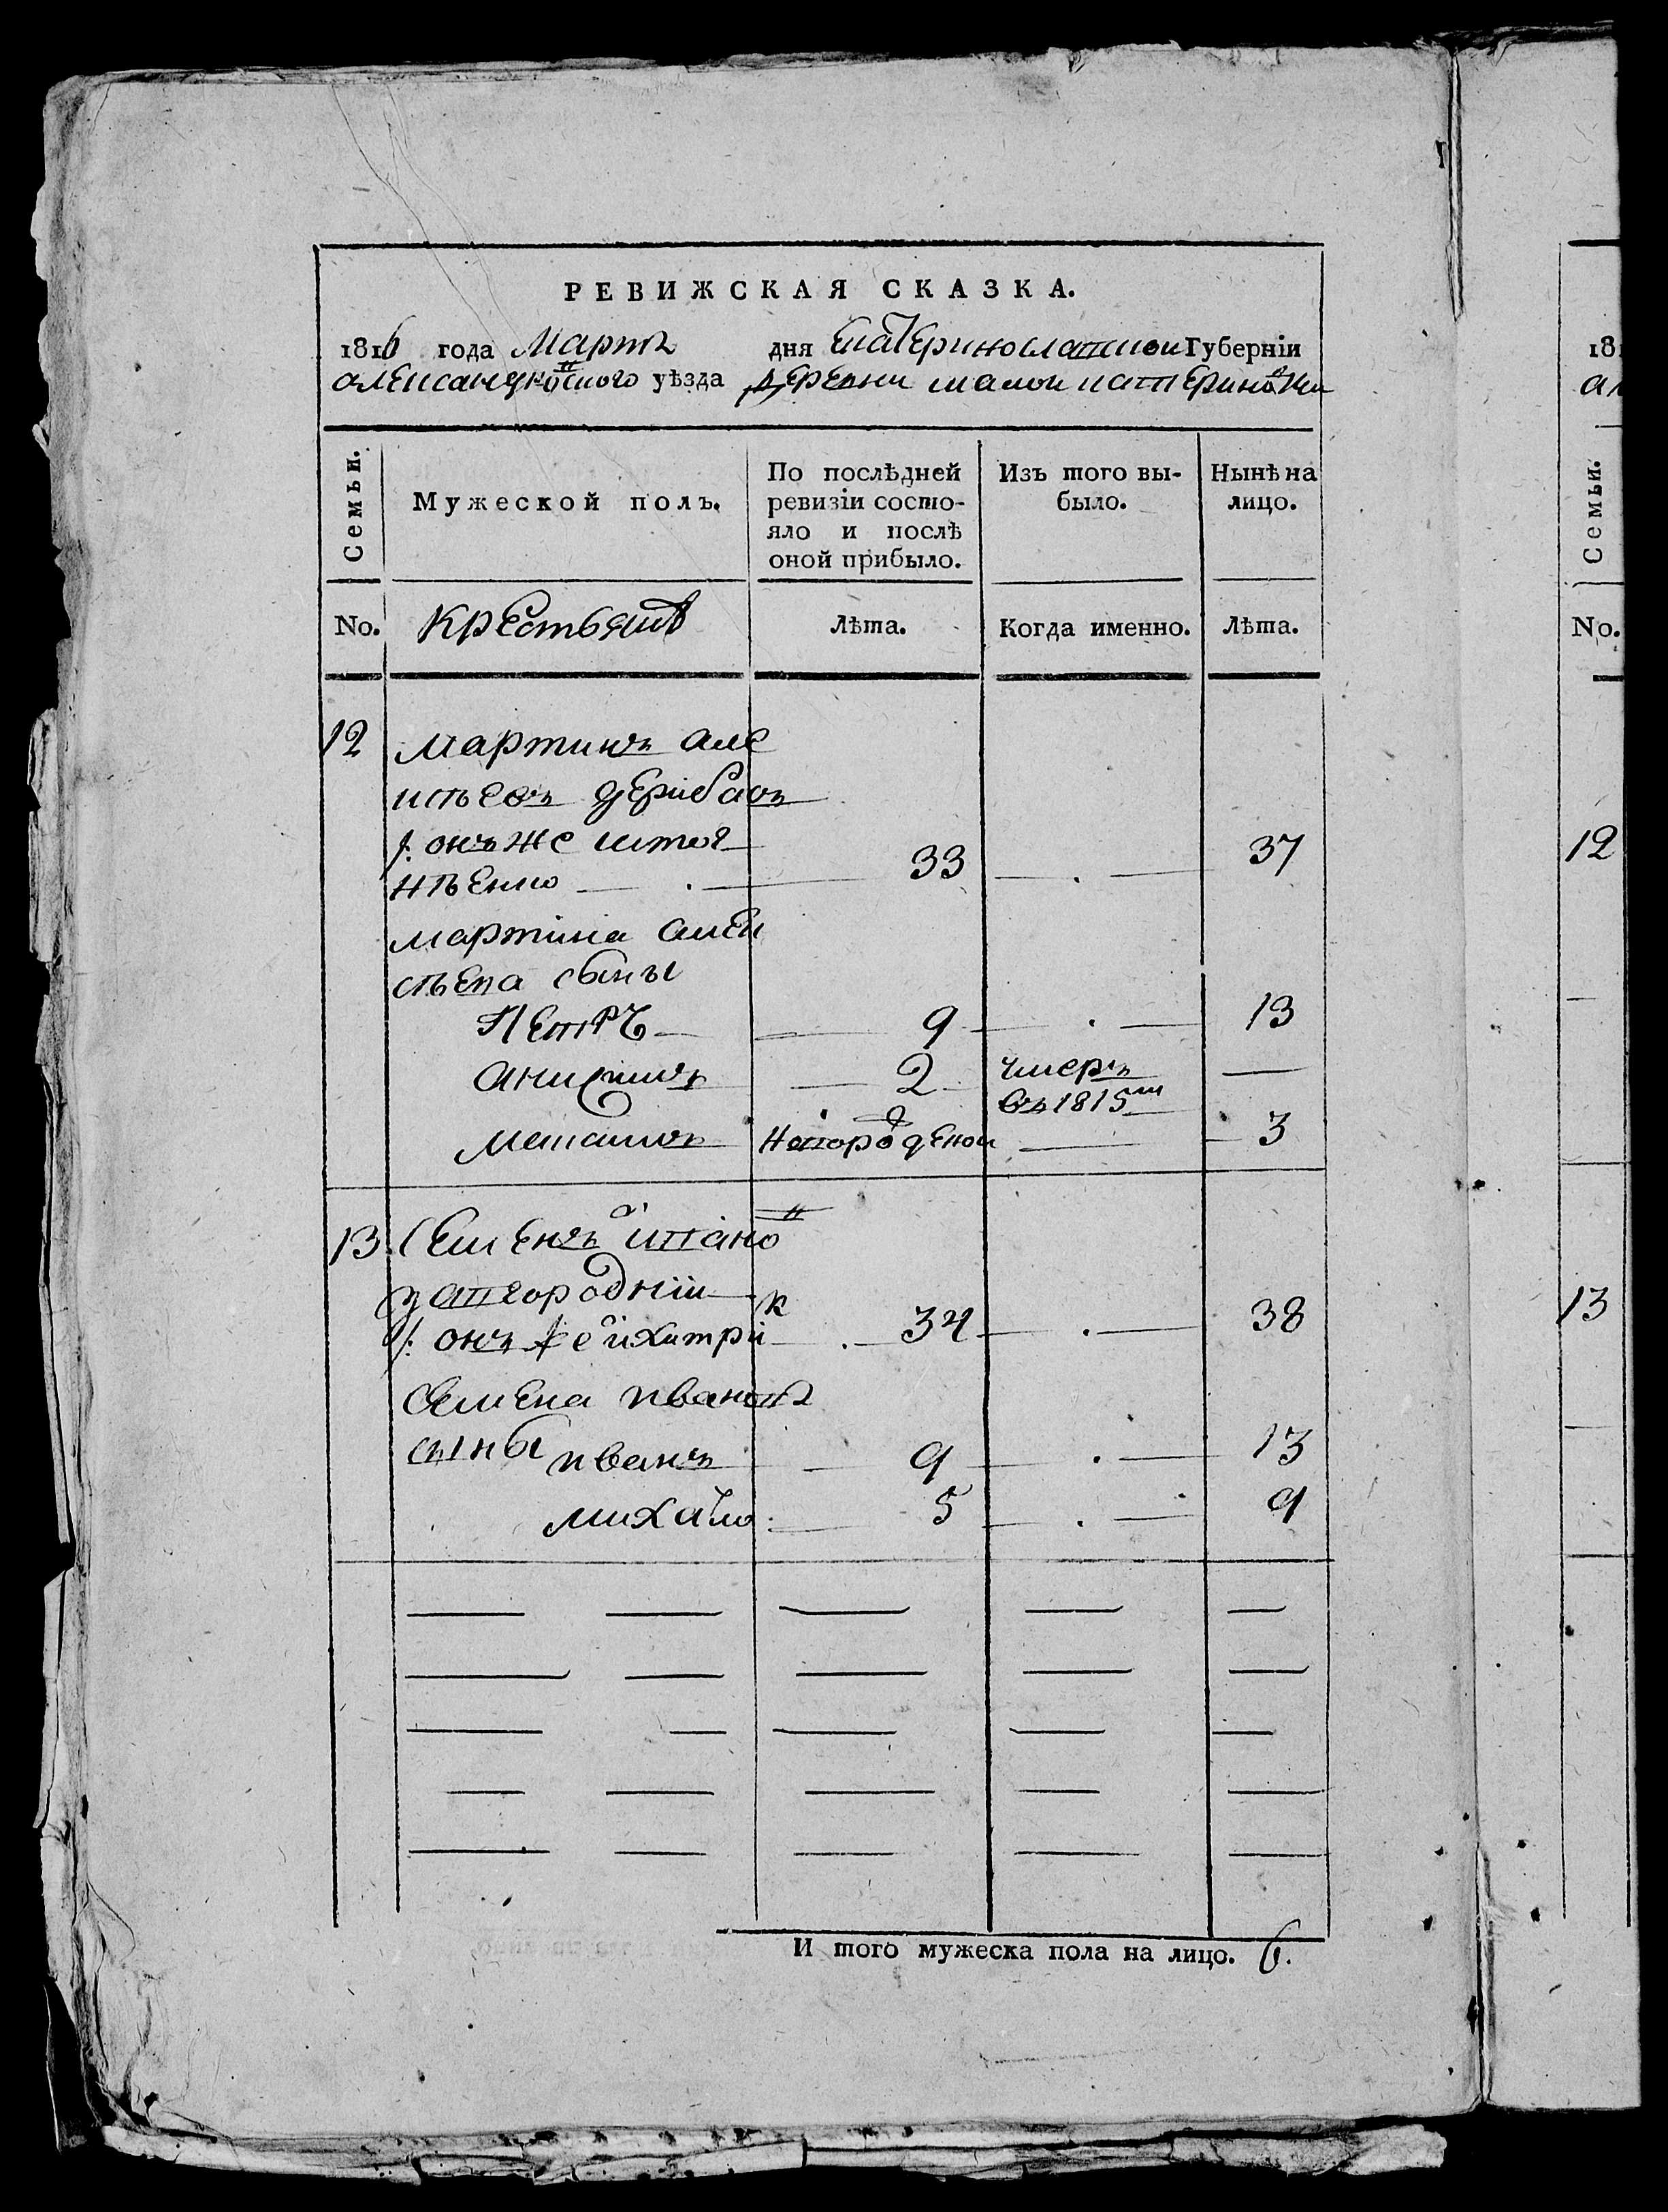 РЕВИЖСКАЯ СКАЗКА.
1816 года Марта дня Екатеринославской Губерніи
александровского уѣзда деревни малой катериновки
Семьи.
Мужеской полъ.
По послѣдней ревизіи состо-
яло и послѣ
оной прибыло.
Изъ того вы-
было.
Нынѣ на
лицо.
No.
Крестьянъ
Лѣта.
Когда именно.
Лѣта.
12 мартинъ але
ксѣевъ
/: онъ же
33 37
мартина алек
сѣева сыны
Петръ 9 13
анисимъ 2 умеръ
въ 1815м
новорожденой 3
13 Семенъ ивано
в
загородній
/: онъ же
34 38
Семена иванова
сыны иванъ 9 13
михайло 5 9
И того мужеска пола на лицо. 6.
18
12
Семьи.
No.
13